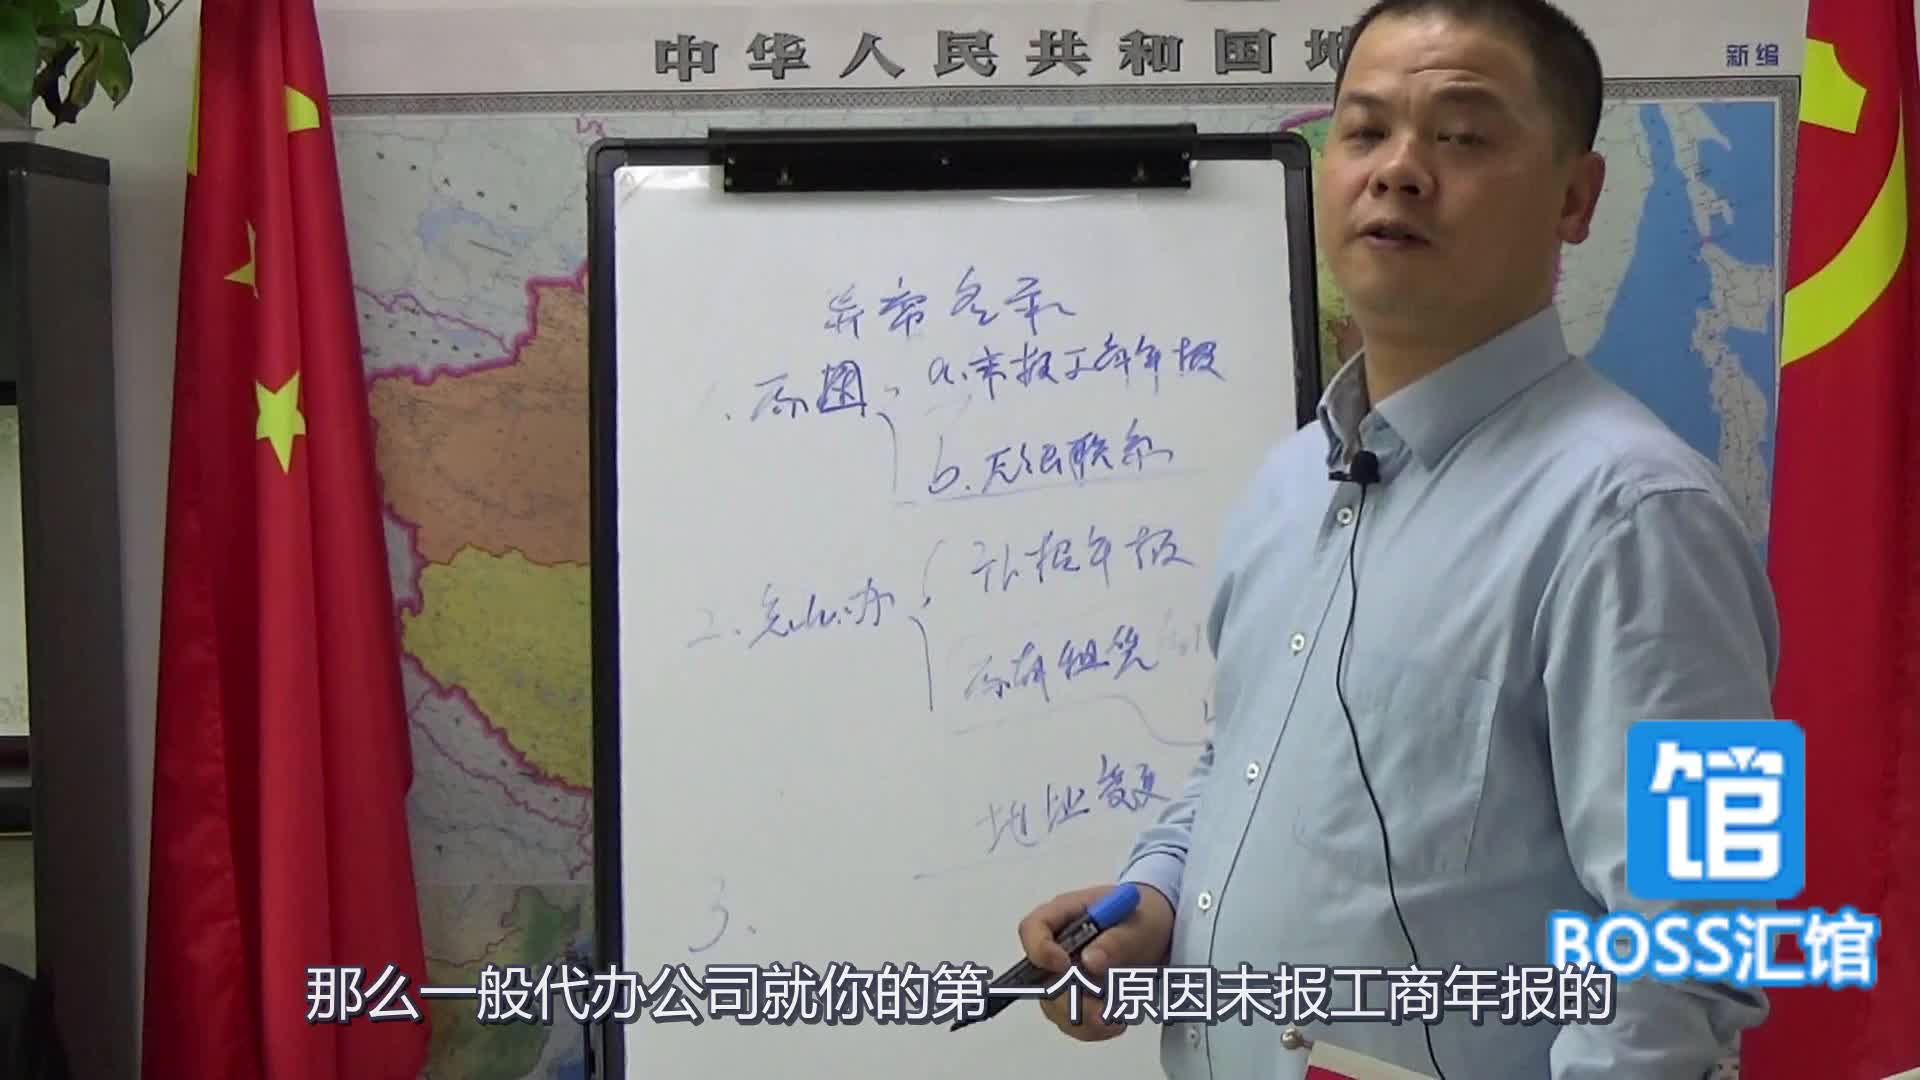 中华人民共和国地
新编
异常名录
1.原因
a.未报工商年报
b.无法联系
2.怎么办
补报年报
原有租赁
地址变更
3.
馆
BOSS汇馆
那么一般代办公司就你的第一个原因未报工商年报的